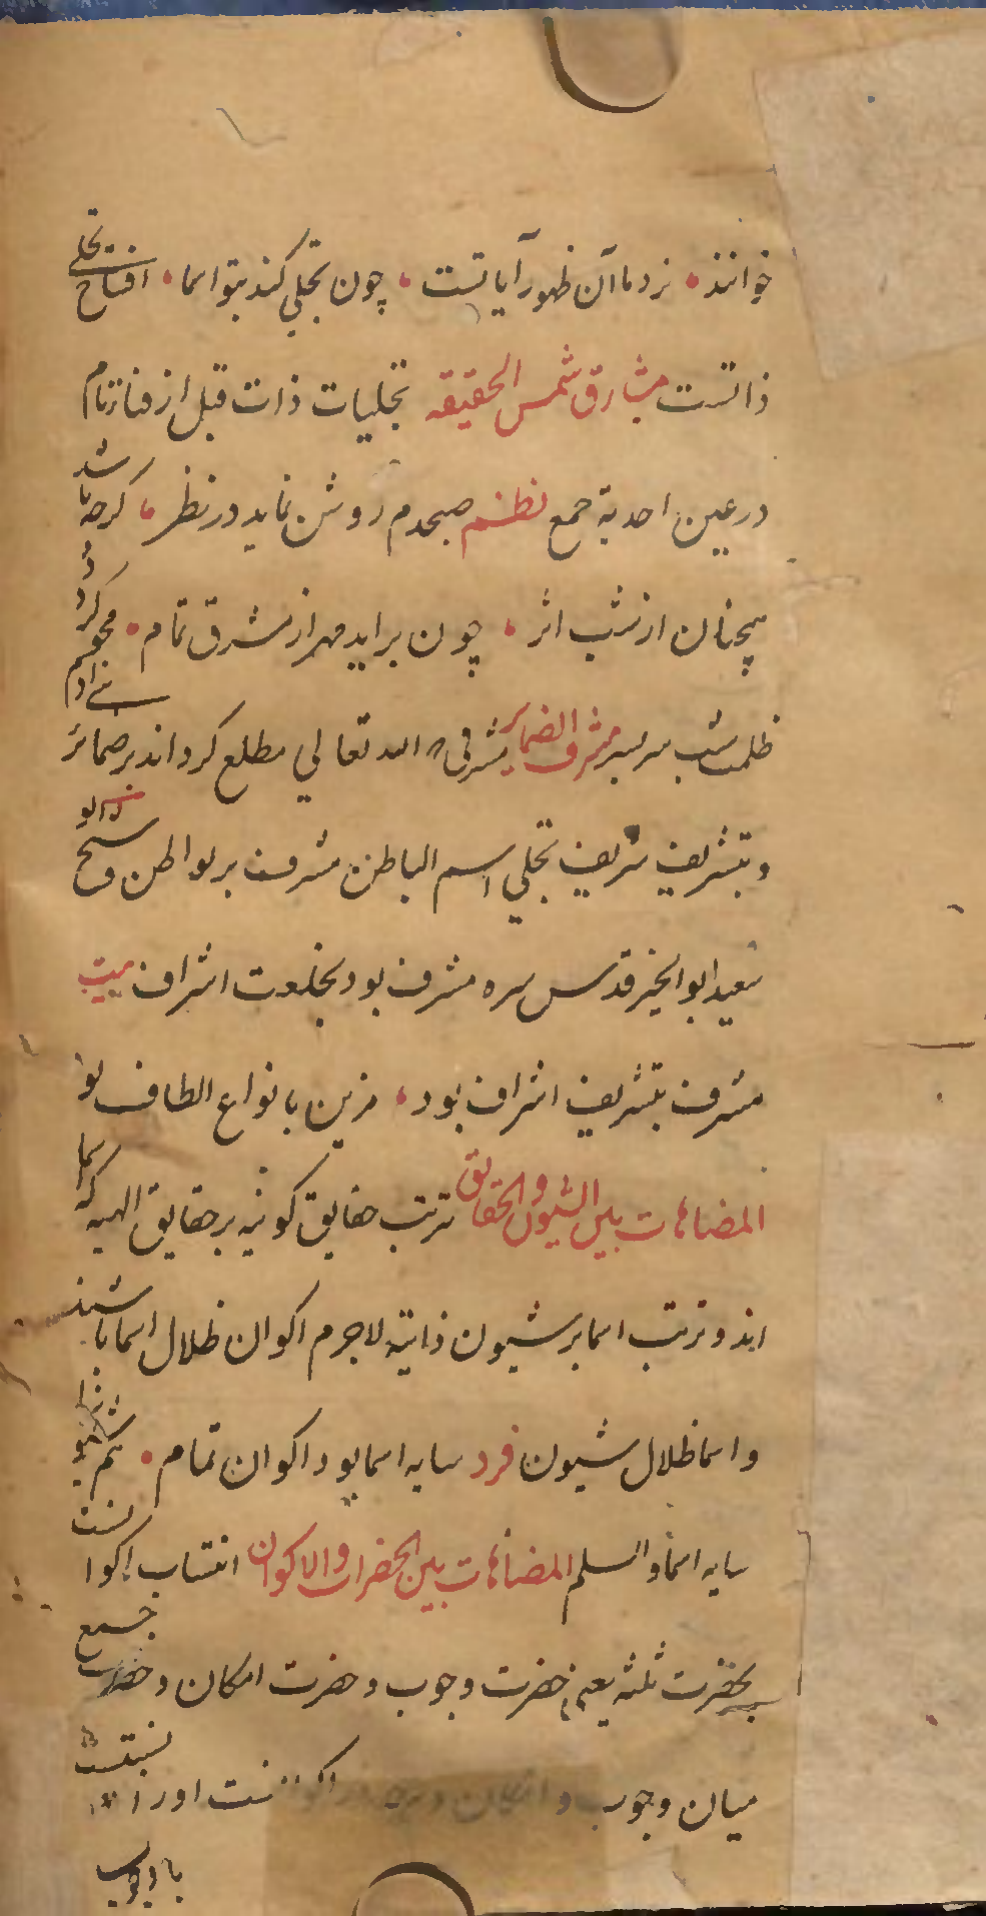 خوانند نزد ما آن ظهور آیاتست چون تجلی کند بتو اسما افتتاح تجلی
ذاتست مشارق شمس الحقیقه تجلیات ذات قبل از فناء تام
در عین احدیة جمع نظم صبحدم روشن نماید در نظر گرچه باشد
همچنان از شب اثر چون براید مهر از مشرق تمام محو گردد
ظلمت شب سر بسر مشرف الضمایر الله تعالی مطلع گرداند بر ضمائر بنی ادم
و بتشریف شریف تجلی اسم الباطن مشرف بر بواطن و شیخ ابو
سعید ابو الخیر قدس سره مشرف بود بخلعت اشراف بیت
مشرف بتشریف اشراف بود مزین بانواع الطاف بود
المضاهات بین الشیون والحقایق ترتب حقایق کونیه بر حقایق الهیه که اسما
اند و ترتب اسما بر شیون ذاتیه لاجرم اکوان ظلال اسما باشند
و اسما ظلال شیون فرد سایه اسما بود اکوان تمام
سایه اسما والسلم المضاهات بین الحضرات والاکوان انتساب اکوان
بحضرت ثلثه یعنی حضرت وجوب و حضرت امکان و حضرت جمع
میان وجوب و امکان اورا نسبتست
با وجوب